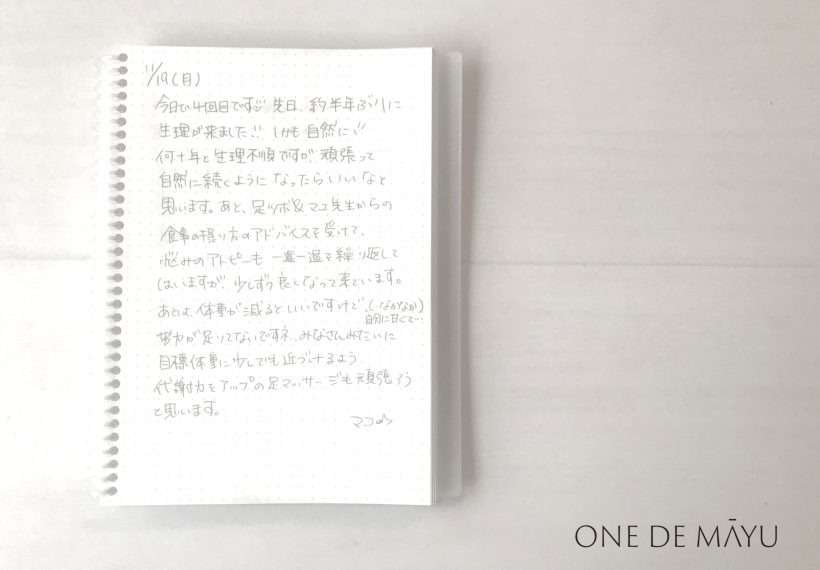 11/19(月)
今日で4回目です!! 先日、約半年ぶりに
生理が来ました!! しかも自然に!!
何十年と生理不順ですが 頑張って
自然に続くようになったらいいなと
思います。あと、足ツボ&マユ先生からの
食事の摂り方のアドバイスを受けて、
悩みのアトピーも 一進一退を繰り返して
はいますが 少しずつ良くなって来ています。
あとは、体重が減るといいですけど、(なかなか
自分に甘くて…)
努力が足りてないですネ、みなさんみたいに
目標体重に少しでも近づけるよう、
代謝力をアップの足マッサージも頑張ろう
と思います。
マコ
ONE DE MĀYU